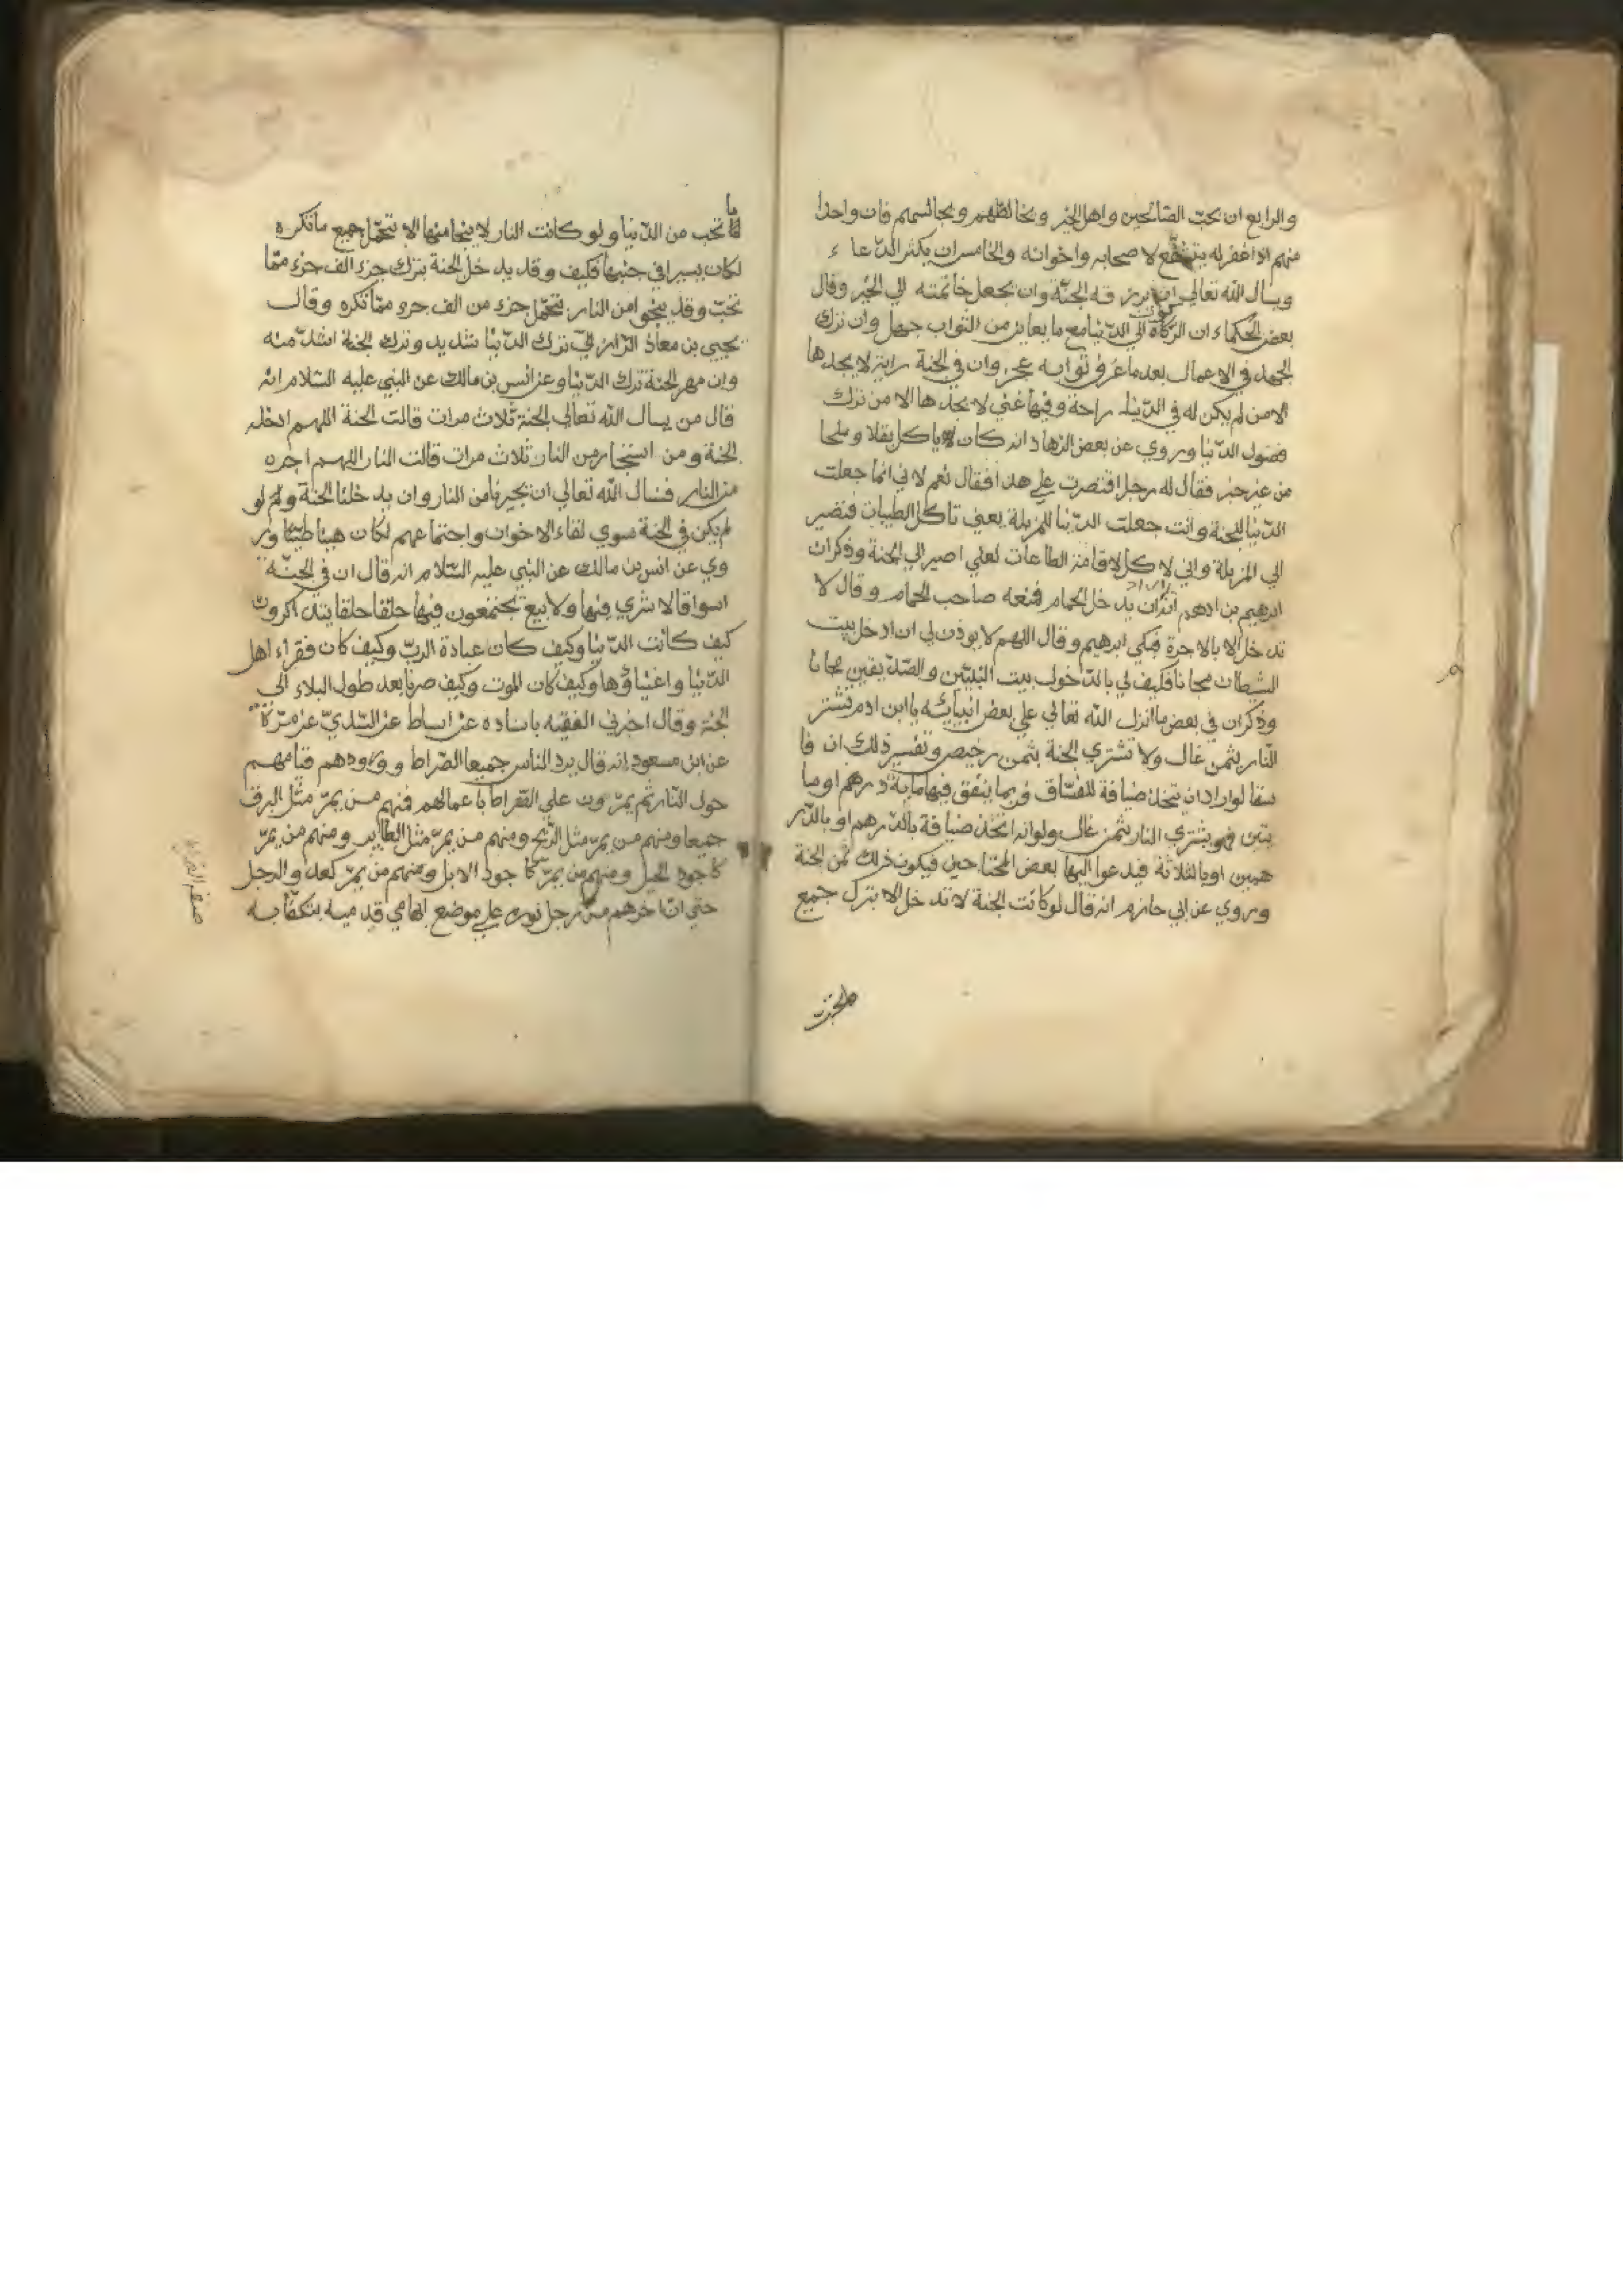 والرابع ان يحبّ الصّالحين واهل الخير ويخالطهم ويجالسهم فان واحدا
منهم اذا غفر له يتشفّع لاصحابه واخوانه والخامس ان يكثر الدّعاء
ويسال الله تعالى ان يرزقه الجنّة وان يجعل خاتمته الي الخير وقال
بعض الحكماء ان الرّكون الي الدّنيا مع ما يعاين من الثواب جهل وان ترك
الجهد في الاعمال بعد ما عرف ثوابه عجز وان في الجنة راحة لا يجدها
الا من لم يكن له في الدّنيا راحة وفيها غني لا يجدها الا من ترك
فضول الدّنيا وروي عن بعض الزهاد انه كان ياكل بقلا وملحا
من غير خبز فقال له رجل اقتصرت علي هذا فقال نعم لاني انما جعلت
الدّنيا للجنة وانت جعلت الدّنيا للمزبلة يعني تاكل الطيبات فتصير
الي المزبلة واني لاكل لاقامة الطاعات لعلي اصير الي الجنة وذكر ان
ابرهيم بن ادهم اراد ان يدخل الحمام فمنعه صاحب الحمام وقال لا
تدخل الا بالاجرة فبكي ابرهيم وقال اللهم لا يوذن لي ان ادخل بيت
الشيطان مجانا فكيف لي بالدّخول بيت النبيّين والصّدّيقين مجانا
وذكر ان في بعض ما انزل الله تعالي علي بعض انبيائه يا ابن ادم تشتر
النّار بثمن غال ولا تشتري الجنة بثمن رخيص وتفسير ذلك ان فا
سقا لو اراد ان يتخذ ضيافة للفسّاق فربما ينفق فيها مائة درهم او ما
يتين فهو يشتري النار بثمن غال ولو انه اتخذ ضيافة بالدّرهم او بالدّر
همين او بالثلاثة فيدعوا اليها بعض المحتاجين فيكون ذلك ثمن الجنة
وروي عن ابي حازم انه قال لو كانت الجنة لا تدخل الا بترك جميع
ما تحب من الدّنيا ولو كانت النار لا ينجا منها الا بتحمّل جميع ما تكره
لكان يسيرا في جنبها فكيف وقد يدخل الجنة بترك جزء الف جزء ممّا
تحبّ وقد ينجوا من النار بتحمّل جزء من الف جزء ممّا تكره وقال
يحيي بن معاذ الرّازيّ ترك الدّنيا شديد وترك الجنة اشدّ منه
وان مهر الجنة ترك الدّنيا وعن انس بن مالك عن النبي عليه السّلام انه
قال من يسال الله تعالي الجنة ثلاث مرات قالت الجنة اللهم ادخله
الجنة ومن استجار من النار ثلاث مرات قالت النار اللهم اجره
من النار فنسال الله تعالي ان يجيرنا من النار وان يدخلنا الجنة ولو
لم يكن في الجنة سوي لقاء الاخوان واجتماعهم لكان هنيا طيبا ور
وي عن انس بن مالك عن النبي عليه السّلام انه قال ان في الجنّة
اسواقا لا شري فيها ولا بيع يجتمعون فيها حلقا حلقا يتذاكرون
كيف كانت الدّنيا وكيف كان عبادة الربّ وكيف كان فقراء اهل
الدّنيا واغنياؤها وكيف كان الموت وكيف صرنا بعد طول البلاء الي
الجنة وقال اخبرني الفقيه باسناده عن اسباط عن السّديّ عن مرّة
عن ابن مسعود انه قال يرد الناس جميعا الصّراط وورودهم قيامهم
حول النّار ثم يمرّون علي الصّراط باعمالهم فمنهم من يمرّ مثل البرق
جميعا ومنهم من يمرّ مثل الرّيح ومنهم من يمرّ مثل الطاير ومنهم من يمرّ
كاجود الخيل ومنهم من يمرّ كاجود الابل ومنهم من يمرّ كعدو الرجل
حتي انّ اخرهم رجل نوره علي موضع ابهامي قدميه يتكفّا به